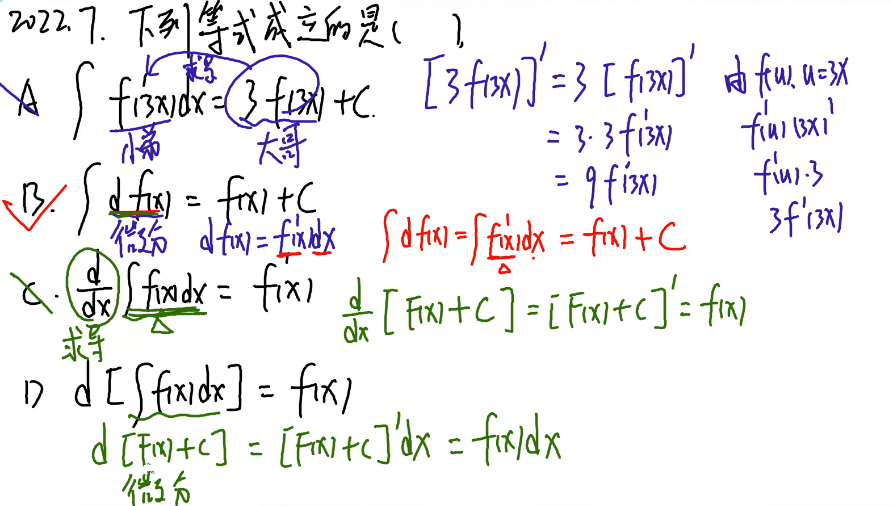 2022.7. 下列等式成立的是( ).
求导
A ∫ f(3x)dx = 3f(3x) + C.
小弟 大哥
[3f(3x)]' = 3[f(3x)]'
= 3·3f'(3x)
= 9f'(3x)
由 f(u). u=3x
f'(u)(3x)'
f'(u)·3
3f'(3x)
B. ∫ df(x) = f(x) + C
微分 df(x) = f'(x)dx
∫df(x) = ∫f'(x)dx = f(x) + C
C. d/dx ∫f(x)dx = f'(x)
求导
d/dx [F(x)+C] = [F(x)+C]' = f(x)
D d[∫f(x)dx] = f(x)
d[F(x)+C] = [F(x)+C]'dx = f(x)dx
微分